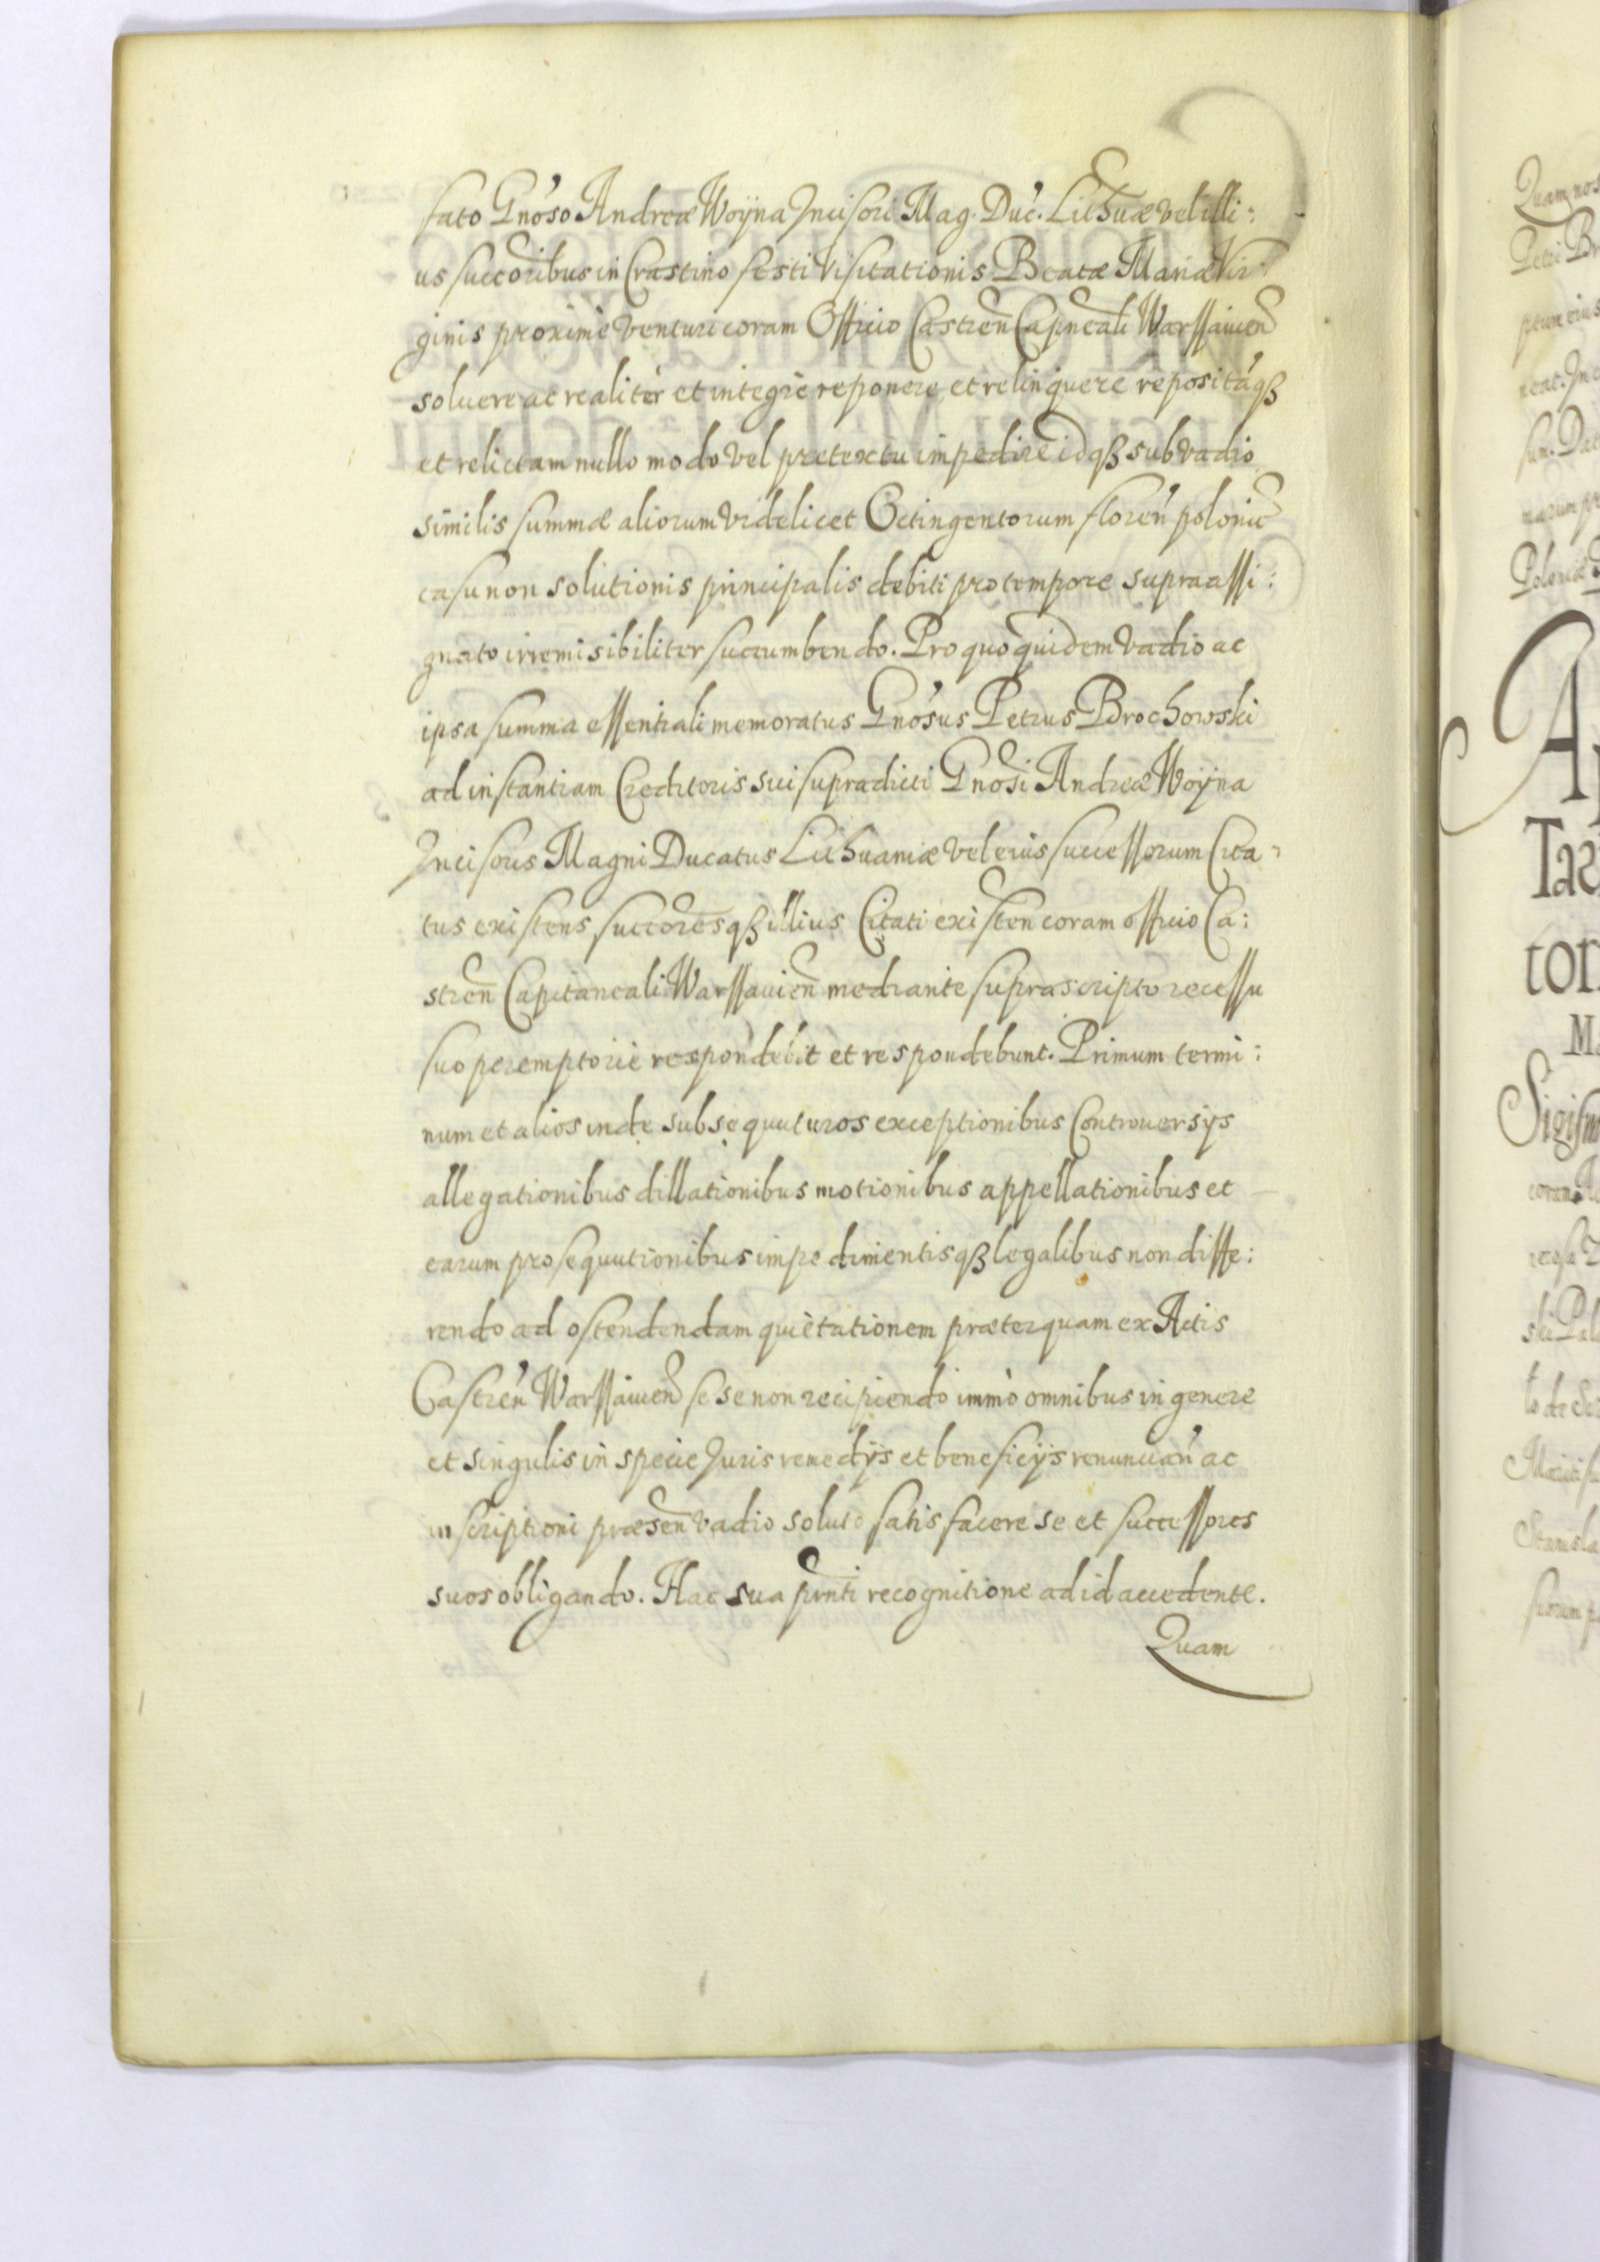 fato Gnoso Andreæ Woÿna Incisori Mag. Duc. Lithuæ vel illi:
us succoribus in Crastino festi Visitationis Beatæ Mariæ Vir:
ginis proximè venturi coram Officio Castren Capneali Warssauien
soluere ac realitèr et integrè reponere et relinquere repositaqß
et relictam nullo modo vel pretextu impedire idqß sub vadio
similis summæ aliorum videlicet Octingentorum floren polonic
casu non solutionis principalis debiti pro tempore supra assi:
gnato irremisibiliter succumbendo. Pro quo quidem vadio ac
ipsa summa essentiali memoratus Gnosus Petrus Brochowski
ad instantiam Creditoris sui supradicti Gnosi Andreæ Woÿna
Incisoris Magni Ducatus Lithuaniæ vel eius successorum Cita:
tus existens, succoresqß illius Citati existen coram officio Ca:
stren Capitaneali Warssauien mediante suprascripto recessu
suo peremptoriè respondebit et respondebunt. Primum termi:
num et alios inde subsequuturos exceptionibus Controuersijs
allegationibus dillationibus motionibus appellationibus et
earum prosequutionibus impedimentisqß legalibus non diffe:
rendo ad ostendendam quietationem præterquam ex Actis
Castren Warssauien sese non recipiendo immò omnibus in genere
et singulis in specie Iuris remedijs et beneficijs renuncian ac
inscriptioni præsen vadio soluto satisfacere se et successores
suos obligando. Hac sua pnti recognitione ad id accedente.
Quam
Quam nos
Petri Br
Tac
tor